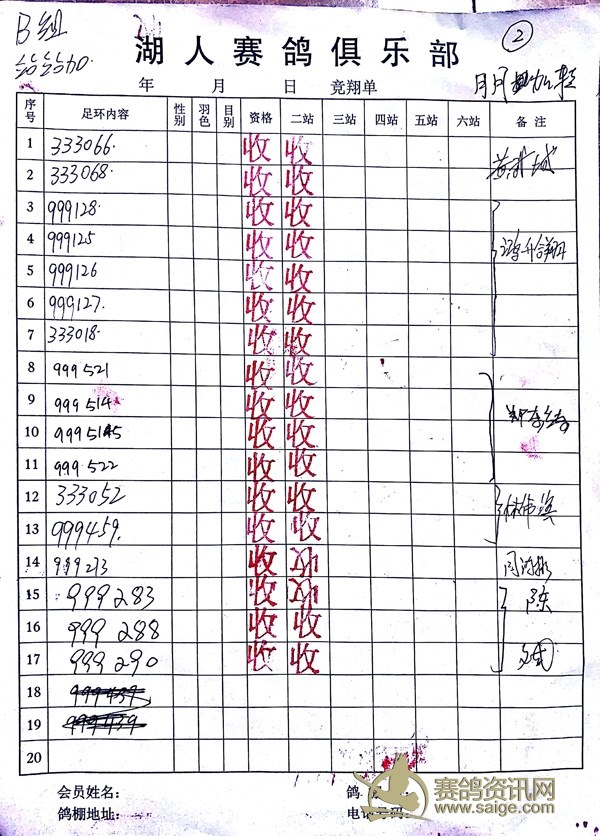 B组
②
湖人赛鸽俱乐部
年 月 日 竞翔单
序号 足环内容 性别 羽色 目别 资格 二站 三站 四站 五站 六站 备注
1 333066. 收 收
2 333068. 收 收
3 999128. 收 收
4 999125 收 收
5 999126 收 收
6 999127. 收 收
7 333018. 收 收
8 999521 收 收
9 999514 收 收
10 收 收
11 999522 收 收
12 333052 收 收 林伟滨
13 999459. 收 收
14 999273 收
15 999283 收 陈
16 999288 收 收
17 999290 收 收
18
19
20
会员姓名： 鸽
鸽棚地址： 电 号码：
赛鸽资讯网
www.saige.com